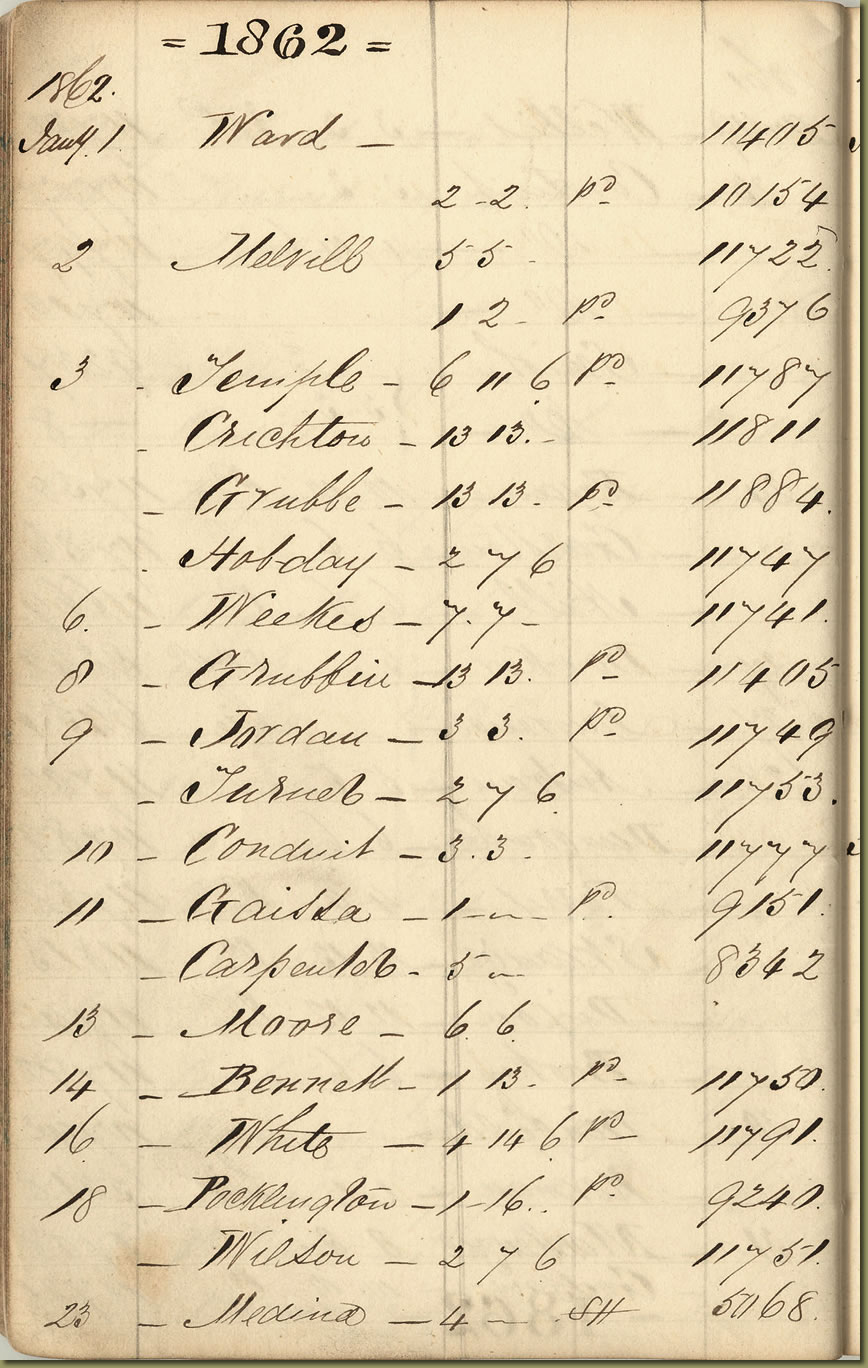 = 1862 =
1862.
Jany. 1 Ward — 11405
2 - 2. pd 10154
2 Melvill 5 5 - 11722.
1 2 - pd 9376
3 - Temple - 6 11 6 pd 11787
- Crichton - 13 13. - 11811
- Grubbe - 13 13 - pd 11884.
- Hobday - 2 7 6 11747
6. - Weekes - 7. 7 - 11741.
8 - Grubbin - 13 13. pd 11405
9 - Jordan - 3 3. pd 11749
- Turner - 2 7 6 11753.
10 - Conduit - 3. 3. 11777
11 - Gaissa - 1 - - pd. 9151.
- Carpenter - 5 - 8342
13 - Moore - 6. 6.
14 - Bennett - 1 13. pd 11750.
16 - White - 4 14 6 pd 11791.
18 - Pocklington - 1 - 16.. pd 9240.
- Wilson - 2 7 6 11751.
23 - Medina - 4 - SH 5068.